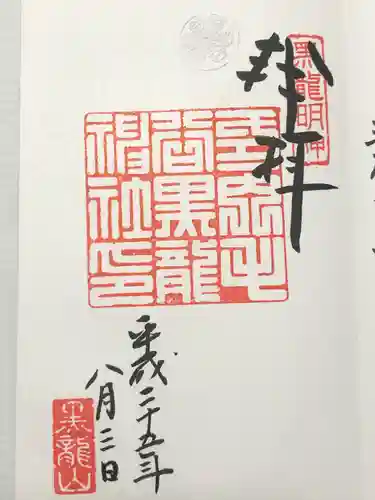 奉拝
黒龍明神
谷黒龍
神社印
平成二十五年
八月三日
黒龍山